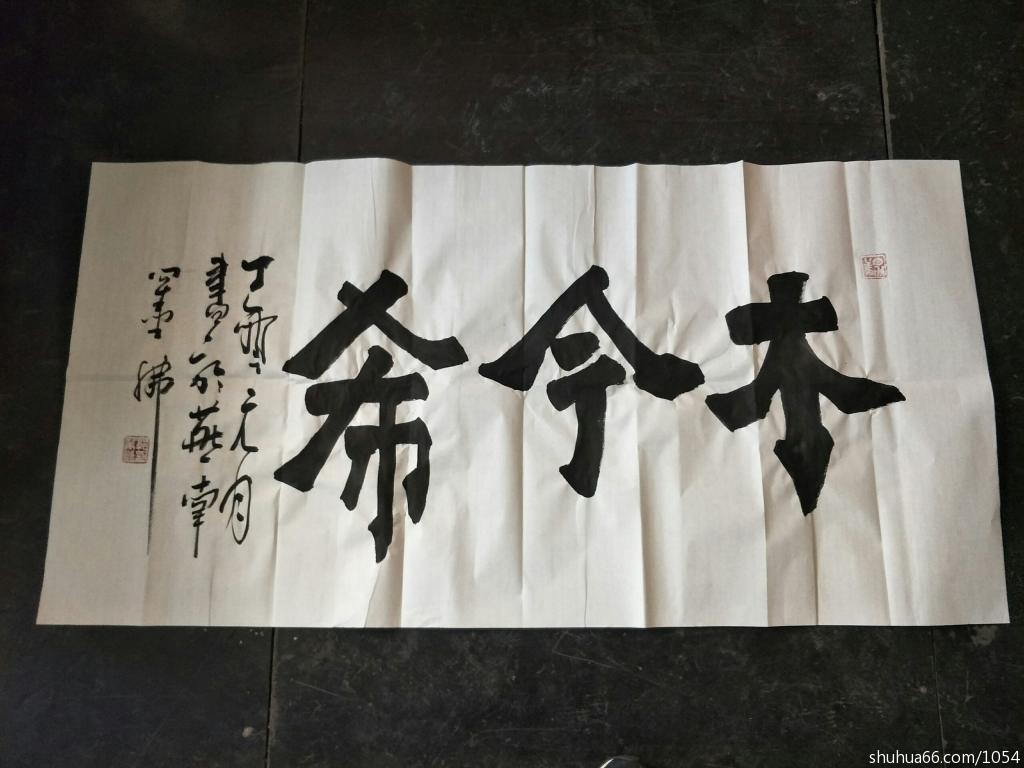 木今希
丁 元月
書 於燕南
墨佛
shuhua66.com/1054